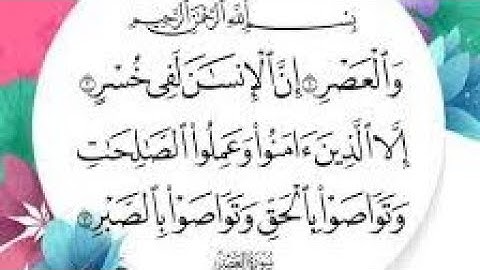 بِسْمِ ٱللَّهِ ٱلرَّحْمَٰنِ ٱلرَّحِيمِ
وَٱلْعَصْرِ ۝١ إِنَّ ٱلْإِنسَـٰنَ لَفِى خُسْرٍ ۝٢
إِلَّا ٱلَّذِينَ ءَامَنُوا۟ وَعَمِلُوا۟ ٱلصَّـٰلِحَـٰتِ
وَتَوَاصَوْا۟ بِٱلْحَقِّ وَتَوَاصَوْا۟ بِٱلصَّبْرِ ۝٣
سُورَةُ العَصْرِ